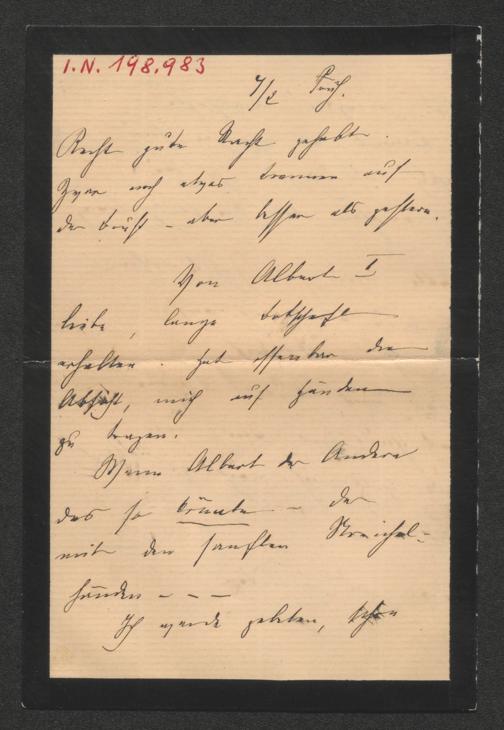 I.N. 198.983
7/2 Früh.
Recht gute Nacht gehabt.
Zwar noch etwas brennen auf
der Brust – aber besser als gestern.
Von Albert I
liebe, lange Botschaft
erhalten. Hat offenbar die
Absicht, mich auf Händen
zu tragen.
Wenn Albert der Andere
das so könnte – der
mit den sanften Streichel-
händen – – –
Ich werde gebeten,